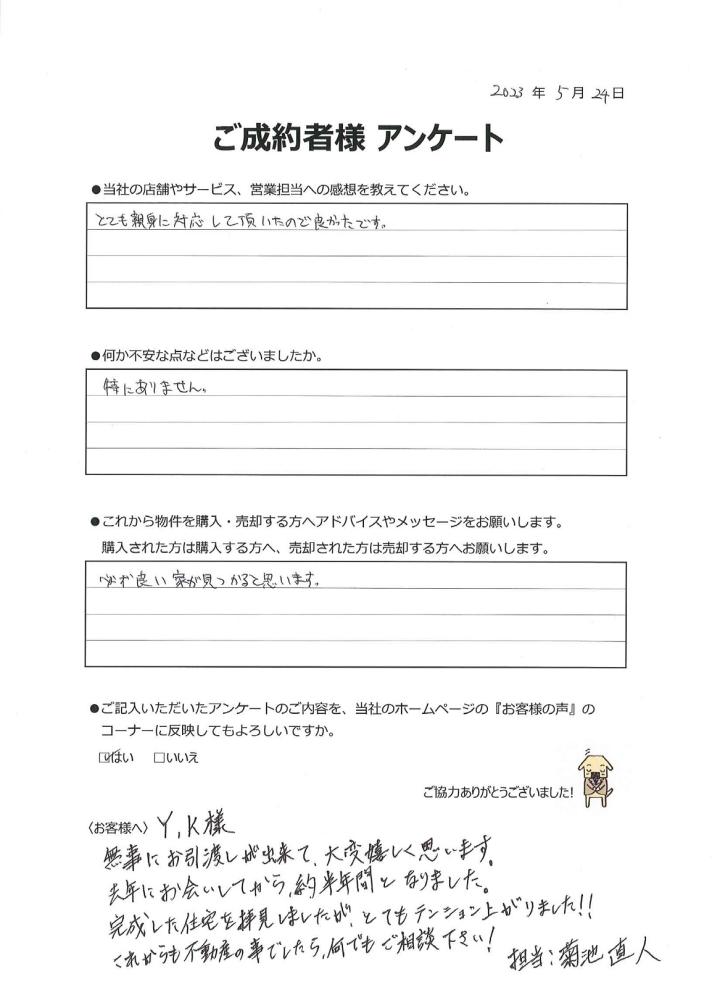 2023年 5月 24日
ご成約者様 アンケート
●当社の店舗やサービス、営業担当への感想を教えてください。
とても親身に対応して頂いたので良かったです。
●何か不安な点などはございましたか。
特にありません。
●これから物件を購入・売却する方へアドバイスやメッセージをお願いします。
購入された方は購入する方へ、売却された方は売却する方へお願いします。
必ず良い家が見つかると思います。
●ご記入いただいたアンケートのご内容を、当社のホームページの『お客様の声』の
コーナーに反映してもよろしいですか。
☑はい □いいえ
ご協力ありがとうございました!
〈お客様へ〉 Y.K様
無事にお引渡しが出来て、大変嬉しく思います。
去年にお会いしてから、約半年間となりました。
完成した住宅を拝見しましたが、とてもテンション上がりました!!
これからも不動産の事でしたら、何でもご相談下さい!
担当:菊池直人